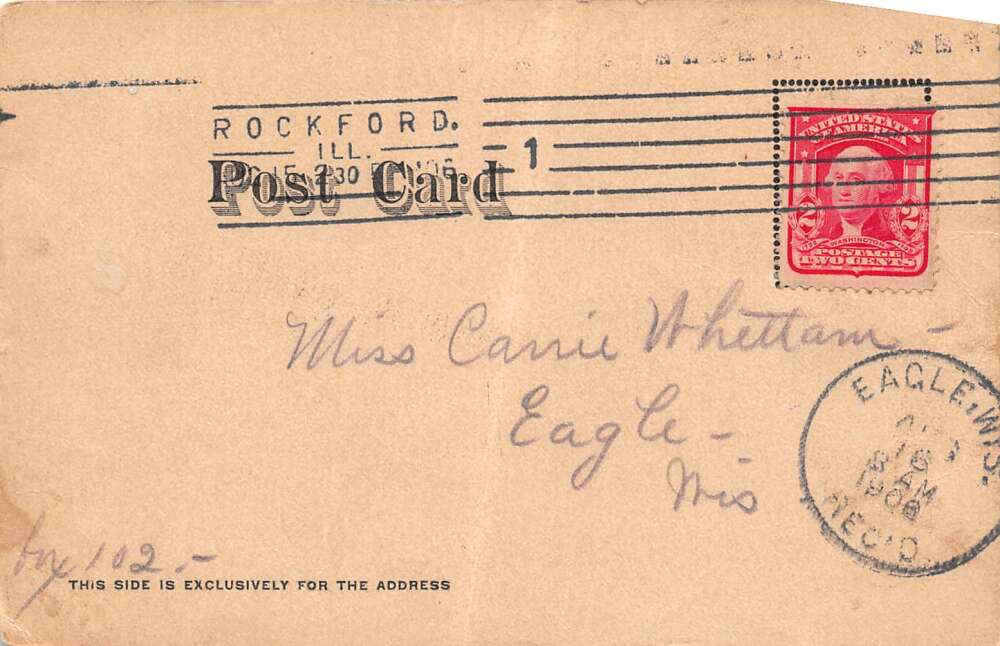 ROCKFORD.
ILL.
15 2 30
1
Post Card
UNITED STATES
OF AMERICA
2 2
WASHINGTON
POSTAGE
TWO CENTS
Miss Carrie Whettam -
Eagle -
Wis
EAGLE, WIS.
16
8 AM
1906
REC'D.
box 102.-
THIS SIDE IS EXCLUSIVELY FOR THE ADDRESS